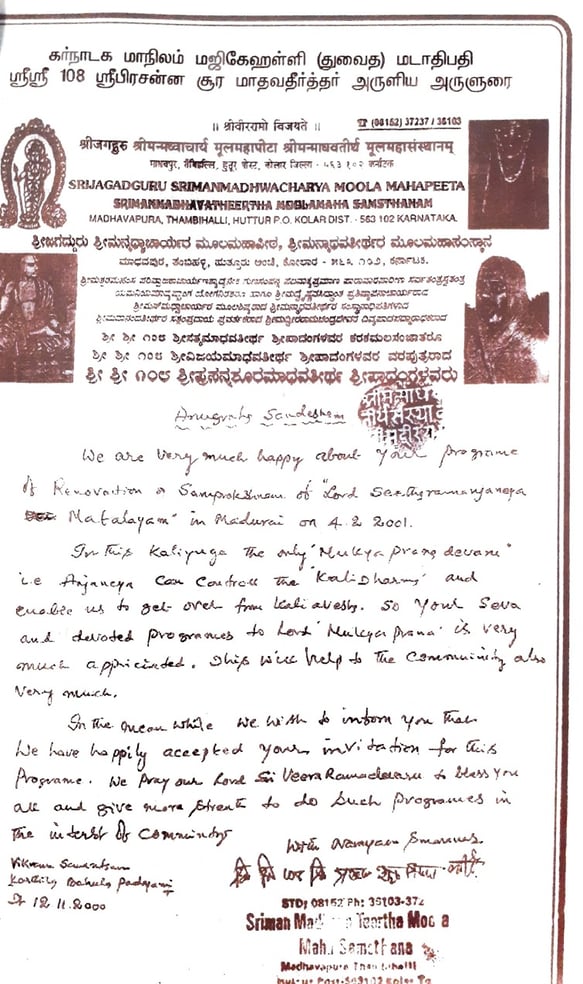 கர்நாடக மாநிலம் மஜிகேஹள்ளி (துவைத) மடாதிபதி
ஸ்ரீஸ்ரீ 108 ஸ்ரீபிரசன்ன சூர மாதவதீர்த்தர் அருளிய அருளுரை
॥ श्रीवीररामो विजयते ॥
☎ (08152) 37237 / 36103
श्रीजगद्गुरु श्रीमन्मध्वाचार्य मूलमहापीठा श्रीमन्माधवतीर्थ मूलमहासंस्थानम्
SRIJAGADGURU SRIMANMADHWACHARYA MOOLA MAHAPEETA
SRIMANMADHAVATHEERTHA MOOLAMAHA SAMSTHANAM
MADHAVAPURA, THAMBIHALLI, HUTTUR P.O. KOLAR DIST. - 563 102 KARNATAKA.
ಶ್ರೀಜಗದ್ಗುರು ಶ್ರೀಮನ್ಮಧ್ವಾಚಾರ್ಯರ ಮೂಲಮಹಾಪೀಠ, ಶ್ರೀಮನ್ಮಾಧವತೀರ್ಥರ ಮೂಲಮಹಾಸಂಸ್ಥಾನ
ಮಾಧವಪುರ, ತಂಬಿಹಳ್ಳಿ, ಹುತ್ತೂರು ಅಂಚೆ, ಕೋಲಾರ - ೫೬೩ ೧೦೨, ಕರ್ನಾಟಕ.
ಶ್ರೀ ಶ್ರೀ ೧೦೮ ಶ್ರೀಸತ್ಯಮಾಧವತೀರ್ಥ ಶ್ರೀಪಾದಂಗಳವರ ಕರಕಮಲಸಂಜಾತರೂ
ಶ್ರೀ ಶ್ರೀ ೧೦೮ ಶ್ರೀವಿಜಯಮಾಧವತೀರ್ಥ ಶ್ರೀಪಾದಂಗಳವರ ವರಪುತ್ರರಾದ
ಶ್ರೀ ಶ್ರೀ ೧೦೮ ಶ್ರೀಪ್ರಸನ್ನಶೂರಮಾಧವತೀರ್ಥ ಶ್ರೀಪಾದಂಗಳವರು
Anugraha Sandesham
We are very much happy about your programe
of Renovation & Samprokshnam of "Lord
in Madurai on 4.2.2001.
In this Kaliyuga the only "Mukya Prana devaru"
i.e Anjaneya can controll the "Kali Dharma" and
enable us to get over from Kali avesh. So your Seva
and devoted programes to Lord 'Mukya Prana' is very
much appriciated. This will help to the Community also
very much.
In the mean while we wish to inform you that
we have happily accepted your invitation for this
Programe. We pray our Lord Sri Veera Ramadevaru to bless you
all and give more strenth to do such programes in
the interst of Community
With Narayana Smarnes.
Vikrama
Karthika Bahula Padyami
12.11.2000
STD; 08152 Ph: 36103-372
Sriman Teertha Moo a
Maha Samsthana
Madhavapura